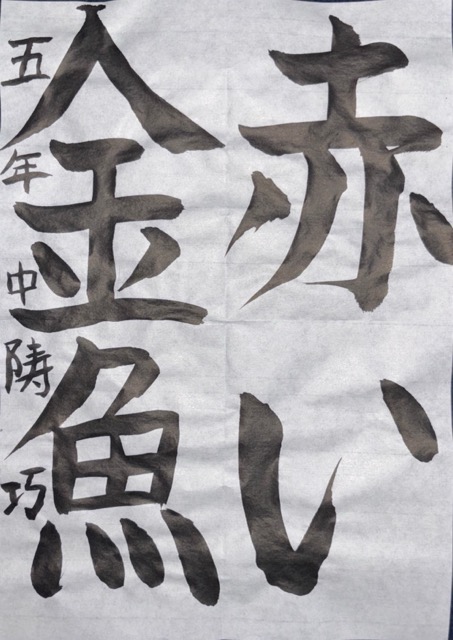 赤い
金魚
五年中陦巧